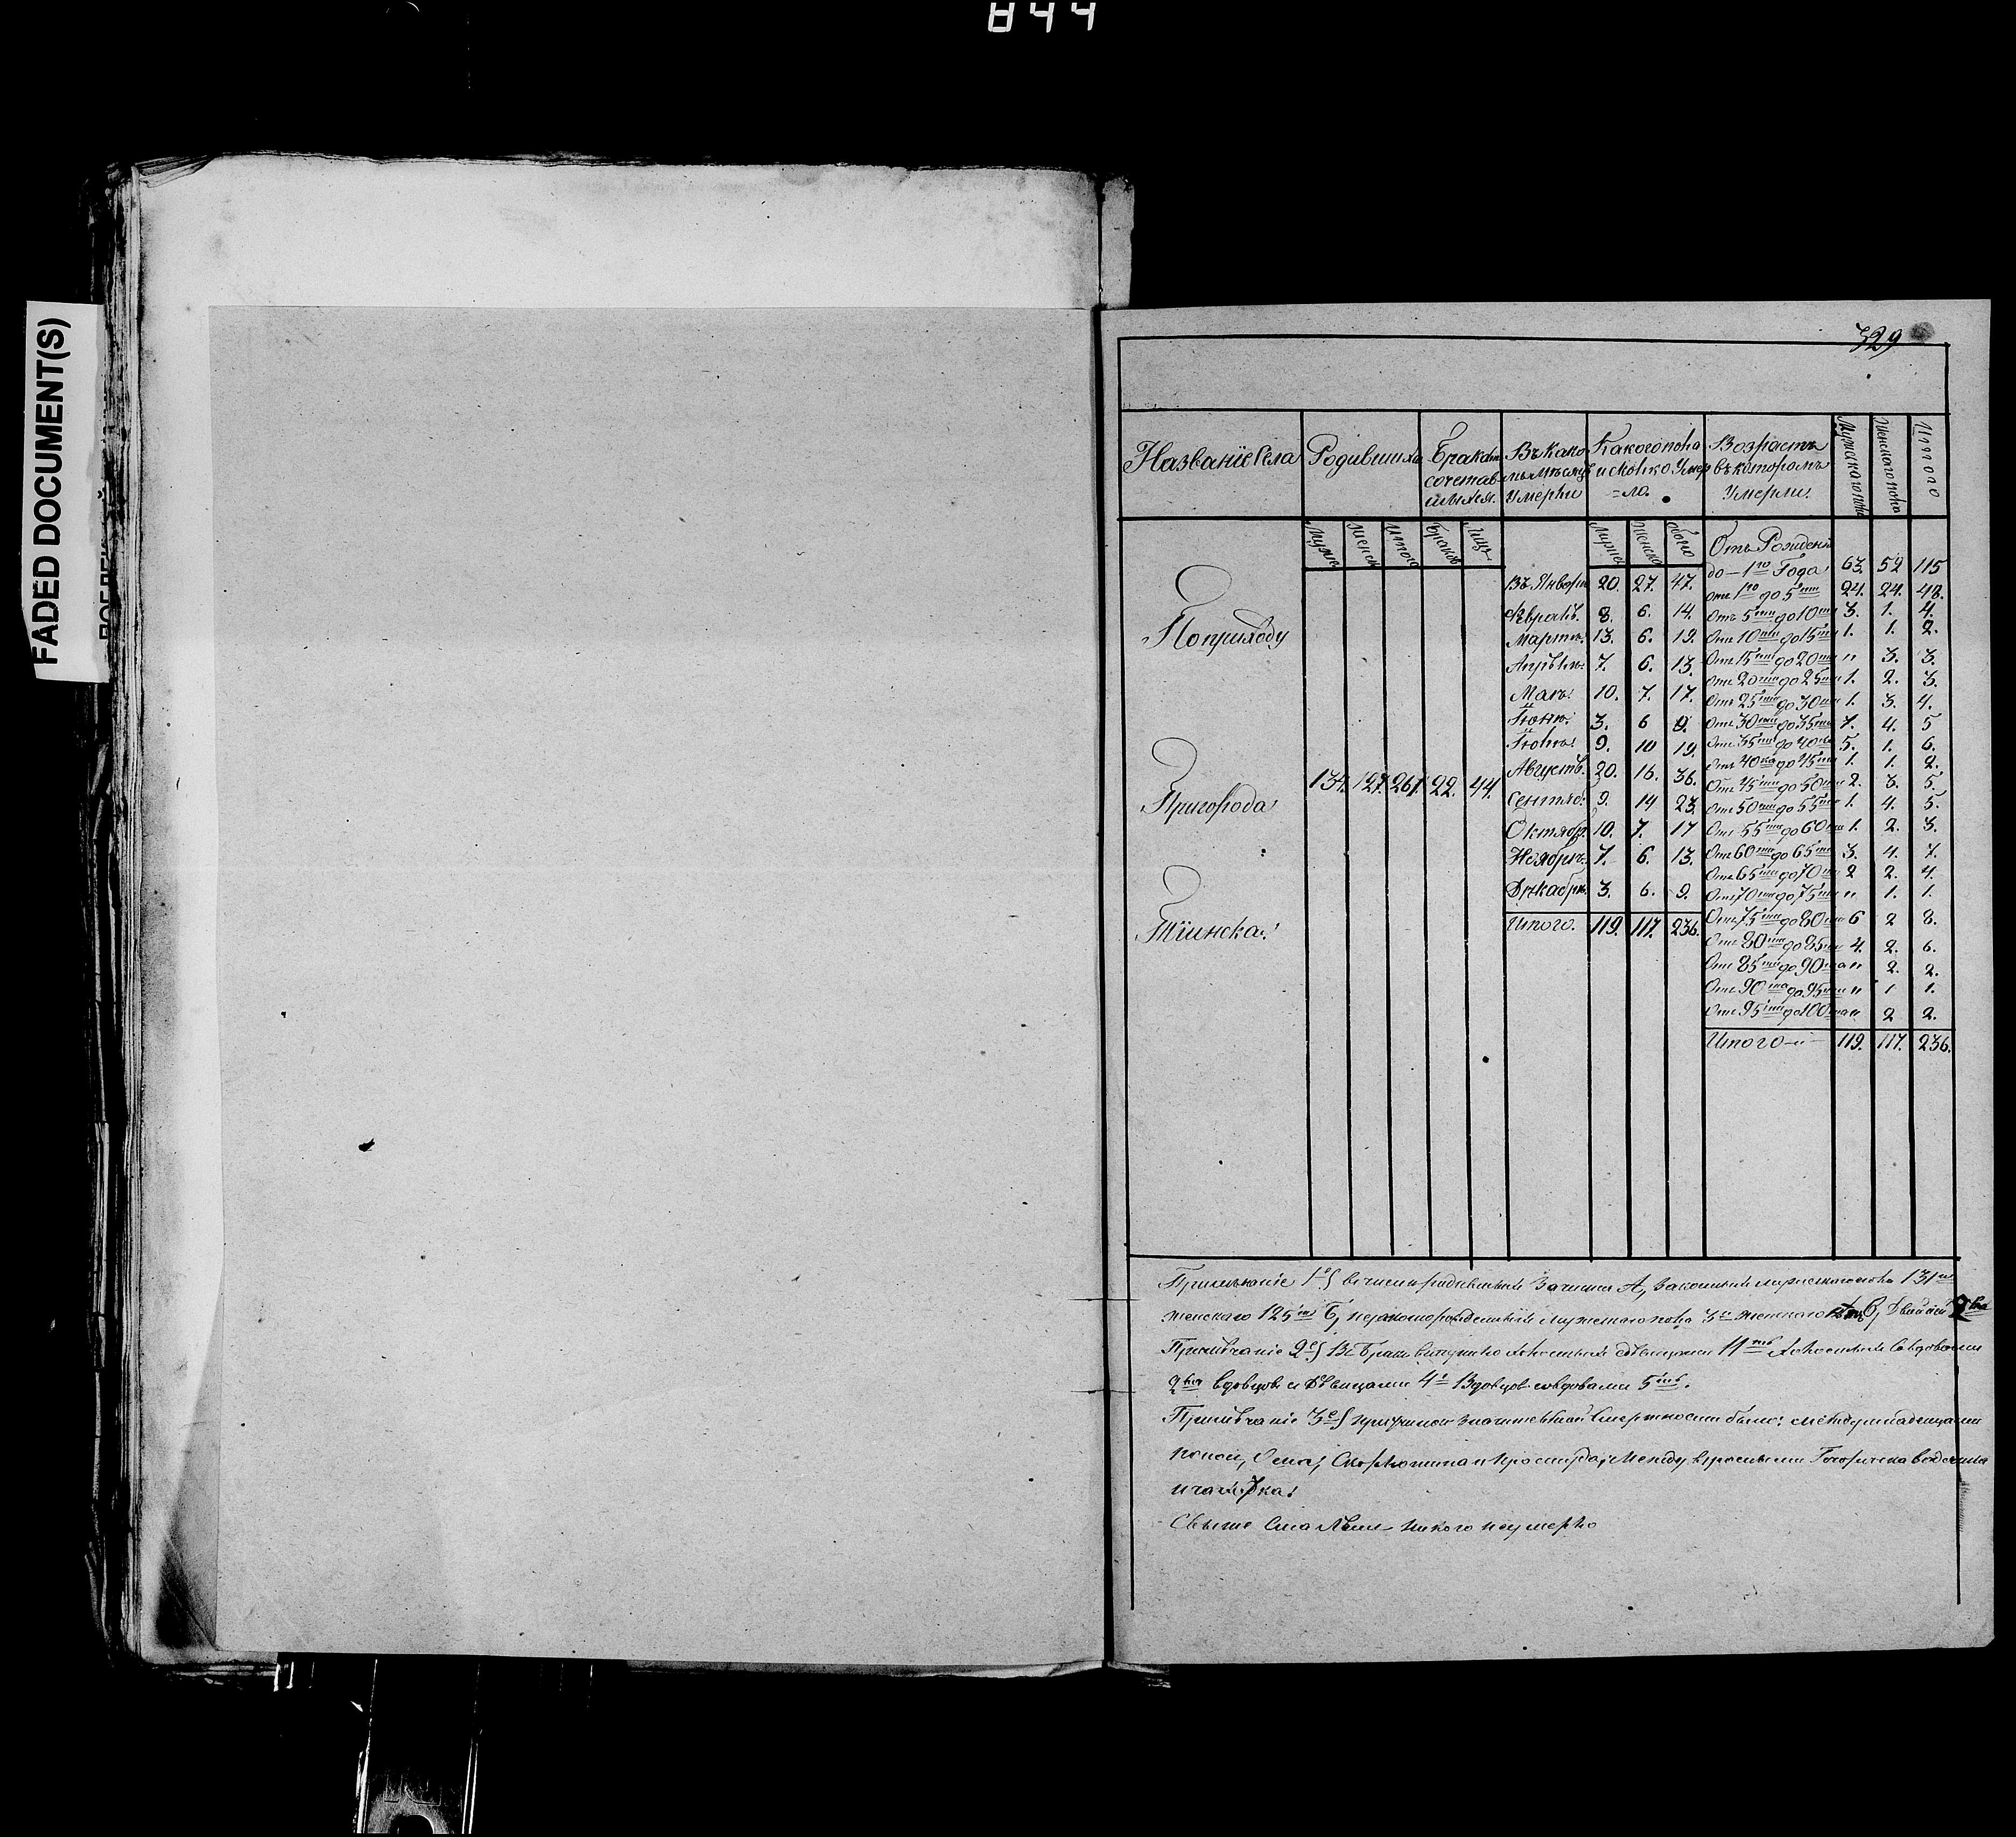 844
FADED DOCUMENT(S)
329
Названіе Села | Родившихся | Бракомъ сочетавшихся. | Въ какомъ мѣсяцѣ умерли | Какого пола и сколько умерло. | Возрастъ въ которомъ умерли. | Мужскаго пола | Женскаго пола | Итого
Мужес | Женск | Итого | Браковъ | Лицъ | Мужес | Женско | Обоего
По приходу
Пригорода
Тіинска.
134. 127. 261. 22. 44.
Въ Январѣ 20. 27. 47.
Февралѣ. 8. 6. 14.
Мартѣ. 13. 6. 19.
Апрѣлѣ. 7. 6. 13.
Маѣ. 10. 7. 17.
Іюнѣ. 3. 6 9.
Іюлѣ. 9. 10 19.
Августѣ. 20. 16. 36.
Сентяб. 9. 14 23.
Октябр. 10. 7. 17
Ноябрѣ. 7. 6. 13.
Декабрѣ. 3. 6. 9.
Итого. 119. 117. 236.
Отъ Рожденія
до 1го Года 63. 52 115
отъ 1го до 5ти 24. 24. 48.
Отъ 5ти до 10ти 3. 1. 4.
Отъ 10ти до 15ти 1. 1. 2.
Отъ 15ти до 20ти " 3. 3.
Отъ 20ти до 25ти 1. 2. 3.
Отъ 25ти до 30ти 1. 3. 4.
Отъ 30ти до 35ти 1. 4. 5
Отъ 35ти до 40ка 5. 1. 6.
Отъ 40ка до 45ти 1. 1. 2.
Отъ 45ти до 50ти 2. 3. 5.
Отъ 50ти до 55ти 1. 4. 5.
Отъ 55ти до 60ти 1. 2. 3.
Отъ 60ти до 65ти 3. 4. 7.
Отъ 65ти до 70ти 2 2. 4.
Отъ 70ти до 75ти " 1. 1.
Отъ 75ти до 80ти 6 2 8.
Отъ 80ти до 85ти 4. 2. 6.
Отъ 85ти до 90та " 2. 2.
Отъ 90та до 95ти " 1 1.
Отъ 95ти до 100та " 2 2.
Итого 119. 117. 236.
Примѣчаніе 1е§ въ числѣ родившихся А, законныхъ мужескаго пола 131нъ
женскаго 125ть Б, незаконнорожденныхъ мужескаго пола 3е женскаго В, Двойни 2
Примѣчаніе 2е§ Въ Бракъ вступило Холостыхъ съ дѣвицами 11ть Холостыхъ со вдовами
2 вдовцовъ съ Дѣвицами 4е Вдовцовъ со вдовами 5ть.
Примѣчаніе 3е§ причиною значительной смертности было: между младенцами
поносъ, Оспа, Скорлотина и простуда; Между взрослыми Горячка водянка
и чахотка.
Свыше ста лѣтъ никого не умерло